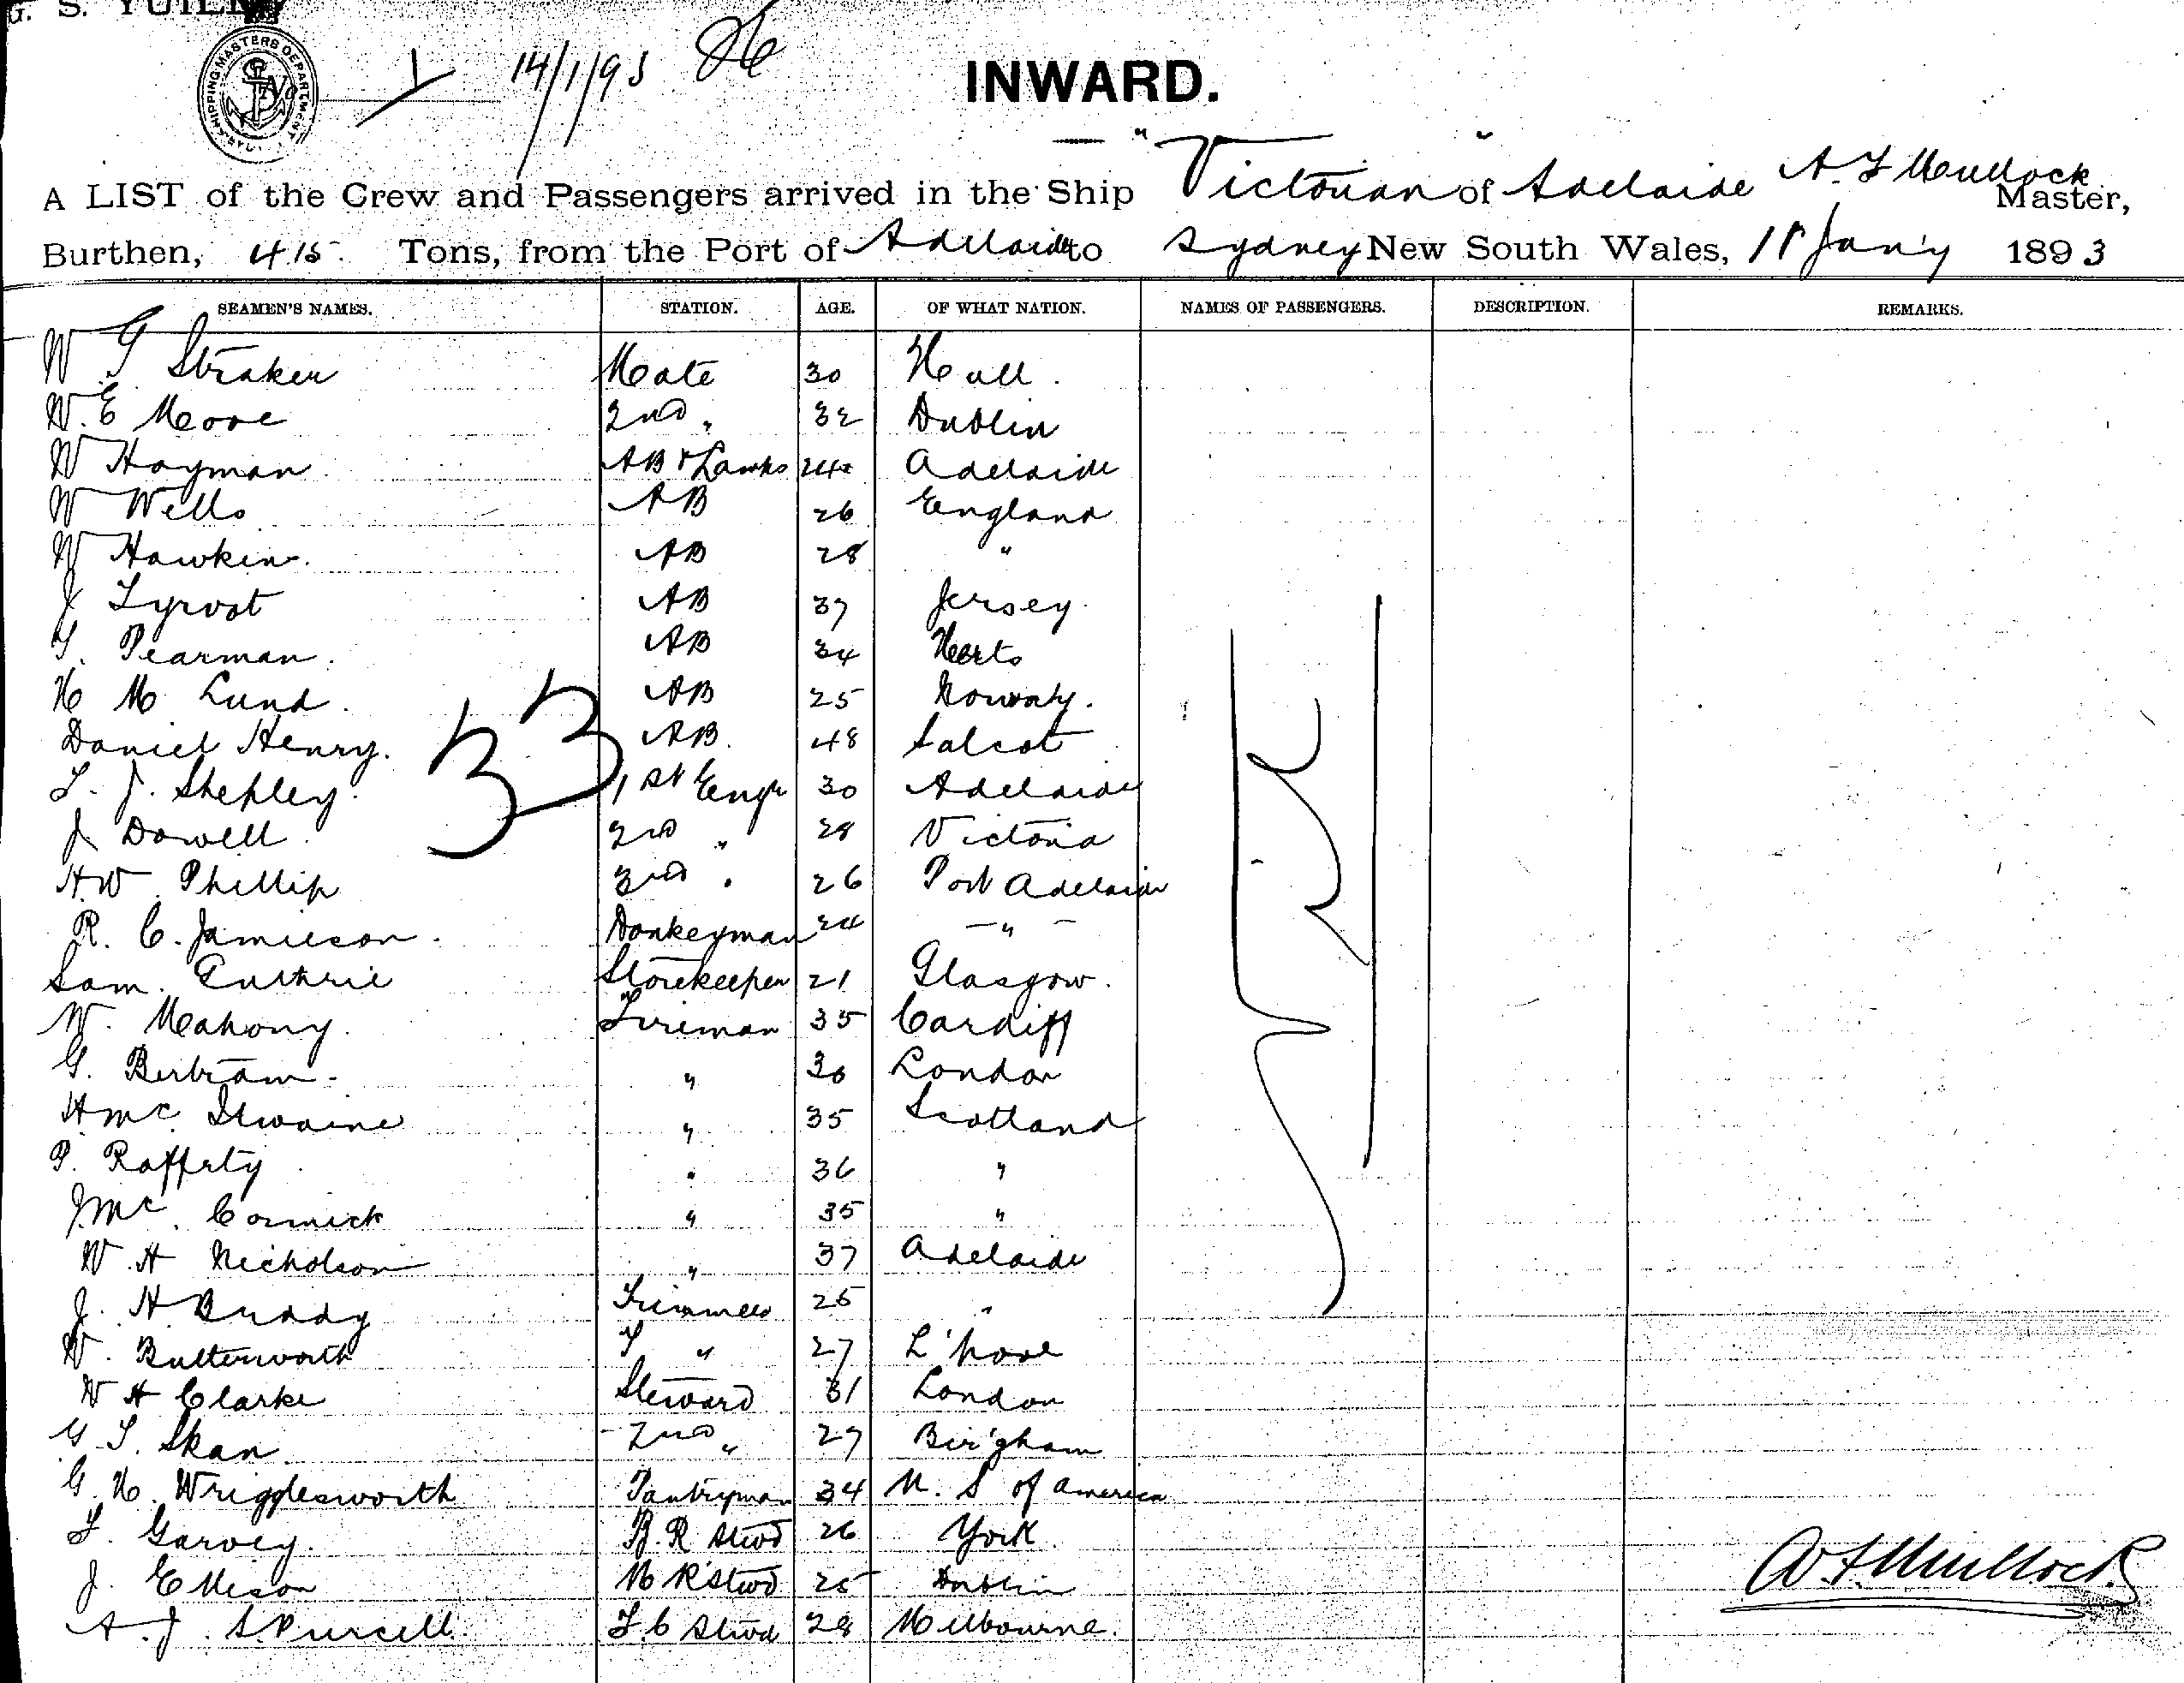 G. S. YUILL
SHIPPING MASTERS DEPARTMENT
14/1/93
INWARD.
A LIST of the Crew and Passengers arrived in the Ship "Victorian" of Adelaide A. F Mullock Master,
Burthen, 415 Tons, from the Port of Adelaide to Sydney New South Wales, 11 Jan'y 1893
SEAMEN'S NAMES. STATION. AGE. OF WHAT NATION. NAMES OF PASSENGERS. DESCRIPTION. REMARKS.
W G Straker Mate 30 Hull.
W. E Moore 2nd " 32 Dublin
W Hayman AB & Lamps 24 Adelaide
W Wells AB 26 England
W Hawkin. AB 28 "
J Syvot AB 37 Jersey
T. Pearman. AB 34 Herts
H M Lund. AB 25 Norway.
Daniel Henry. AB. 48 Salcot
33
J. Shepley. 1st Engr 30 Adelaide
J Dowell. 2nd " 28 Victoria
H.W. Phillip 3rd " 26 Port Adelaide
R. C. Jamieson. Donkeyman 24 - " -
Sam. Guthrie Storekeeper 21 Glasgow.
W. Mahony. Fireman 35 Cardiff
G. Bertram. " 30 London
H. Mc Ilwaine " 35 Scotland
P. Rafferty " 36 "
J Mc Cormick " 35 "
W. H Nicholson " 37 Adelaide
J. H Buddy Trimmer 25 "
W. Butterworth " 27 L'pool
W H Clarke Steward 31 London
G T. Skan. 2nd " 27 Bir'gham
G. H. Wrigglesworth Pantryman 34 U. S of America
F. Garvey. B. R Stwd 26 York
J. Ellison M R Stwd 25 Dublin
A. J. S. Purcell. F. C Stwd 28 Melbourne.
A F. Mullock